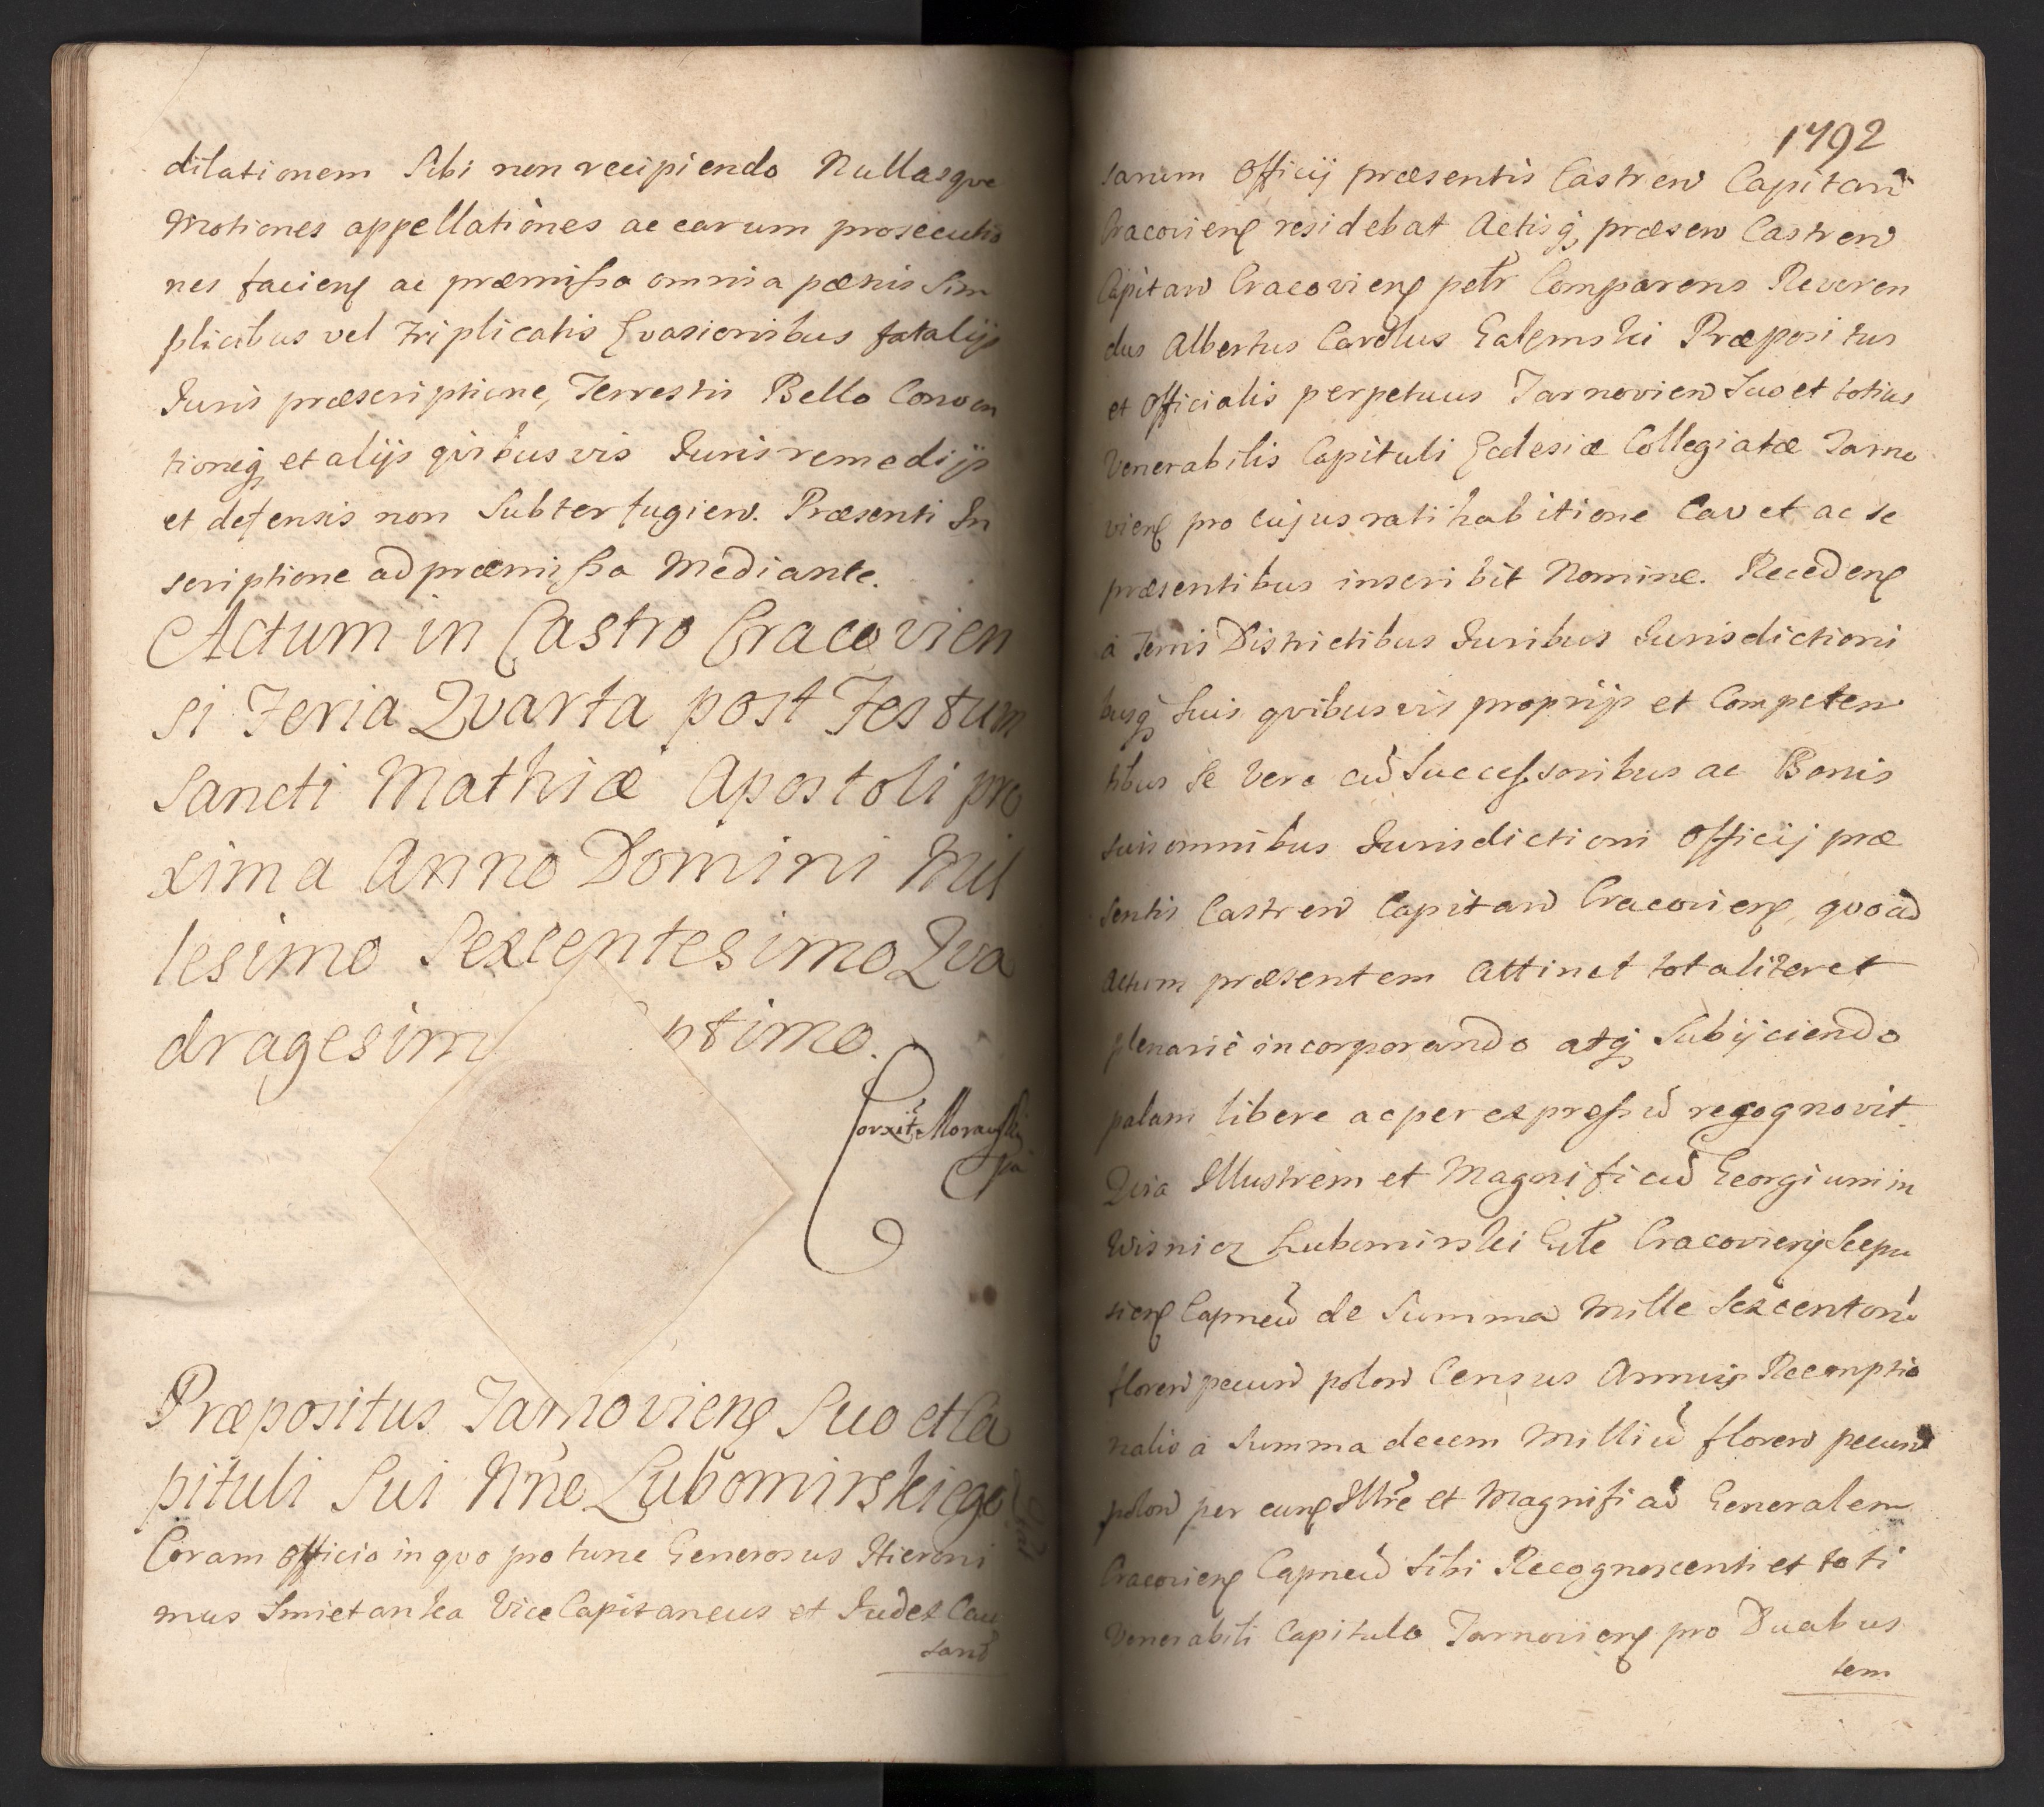 dilationem Sibi non recipiendo Nullasque
Motiones appellationes ac earum prosecutio
nes facienꝭ ac præmissa omnia pœnis Sim
plicibus vel triplicatis Evasionibus fatalijs
Juris præscriptione, Terrestris Bello Conven
tioneqꝫ et alijs quibusvis Juris remedijs
et defensis non Subterfugien. Præsenti In
scriptione ad præmissa Mediante.
Actum in Castro Cracovien
si Feria Quarta post Festum
Sancti Mathiæ Apostoli pro
xima Anno Domini Mil
lesimo Sexcentesimo Qua
dragesim ptimo.
Corxit Morawski
Præpositus Tarnovienꝭ Suo et Ca
pituli Sui Nñe Lubomirskiego
Coram officio in quo pro tunc Generosus Hieroni
mus Smietanka ViceCapitaneus et Judex Cau
sarũ
1792
sarum Officij præsentis Castren Capitan̄
Cracovienꝭ residebat Actisqꝫ præsen Castren
Capitan Cracovienꝭ petr̃ Comparens Reveren
dus Albertus Carolus Galemski Præpositus
et Officialis perpetuus Tarnovien Suo et totius
Venerabilis Capituli Ecclesiæ Collegiatæ Tarno
vienꝭ pro cujus ratihabitione Cavet ac se
præsentibus inscribit Nomine. Recedenꝭ
à Terris Districtibus Juribus Jurisdictioni
busqꝫ Suis quibusvis proprijs et Competen
tibus Se vero cũ Successoribus ac Bonis
suis omnibus Jurisdictioni Officij præ
sentis Castren Capitan Cracovienꝭ, quoad
Actum præsentem Attinet totaliter et
plenariè incorporando atqꝫ Subijciendo
palam libere ac per expressũ regognovit.
Quia Illustrem et Magnificũ Georgium in
Wisnicz Lubomirski Gñle Cracovienꝭ Scepu
sienꝭ Capneũ de Summa Mille Sexcentorũ
floren pecun polon Census Annuij Reemptio
nalis à Summa decem Milliũ floren pecun
polon per eunꝭ Illtr̃e et Magnificũ Generalem
Cracovienꝭ Capneũ Sibi Recognoscenti et toti
Venerabili Capitulo Tarnovienꝭ pro Duabus
tem